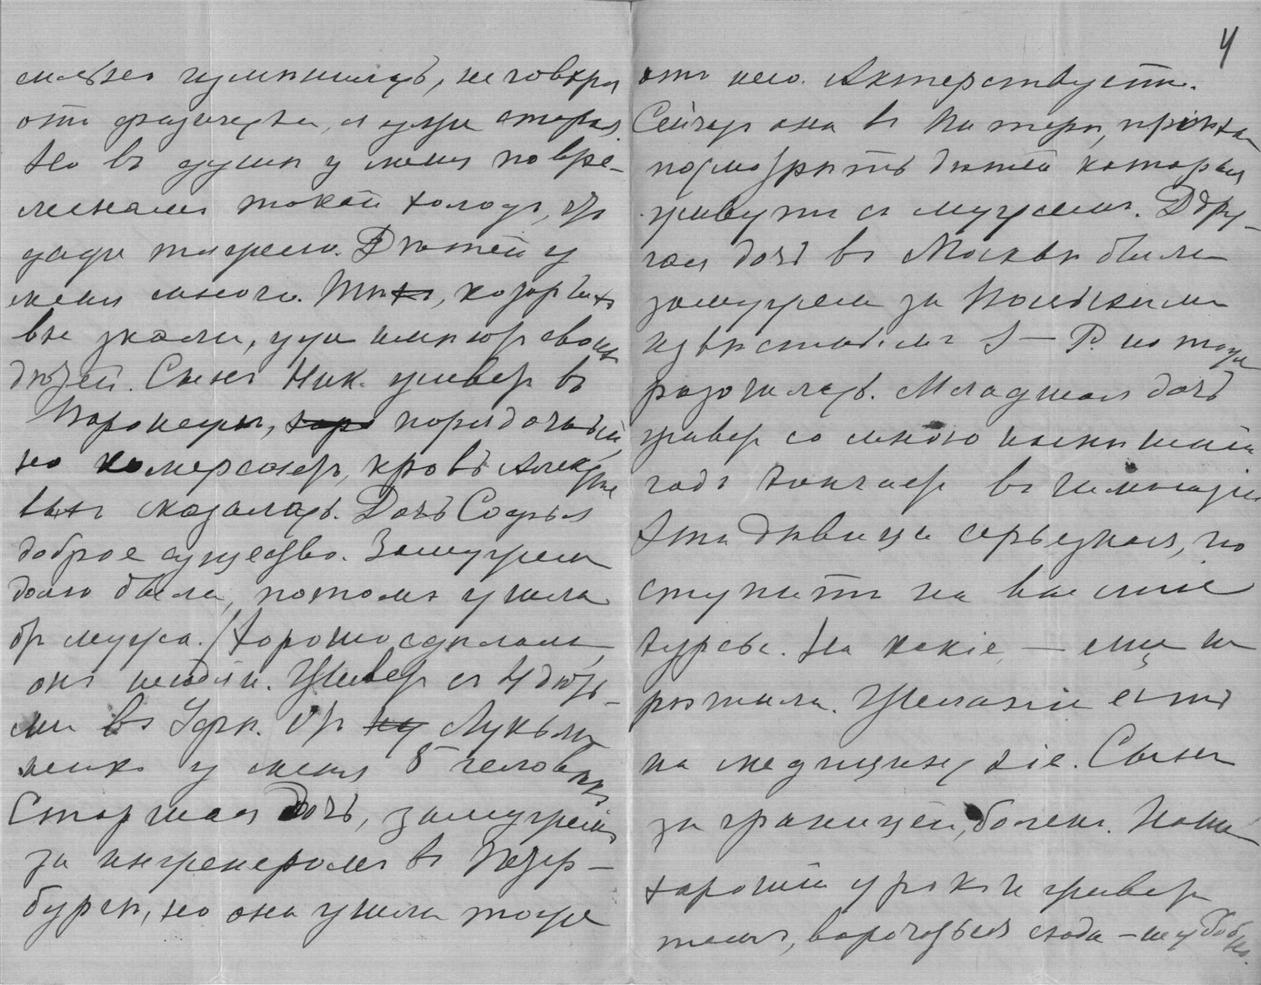 4
сильно измѣнилась, не говоря
отъ физически, я ужъ старая
Но въ душѣ у меня по вре-
менамъ такой холодъ, что
даже тяжело. Дѣтей у
меня много. Тѣ, которыхъ
вы знали, ужъ имѣютъ своихъ
дѣтей. Сынъ Ник. живетъ въ
Воронежѣ, порядочный,
но комерсантъ, кровь
сказалась. Дочь Софья
доброе существо. Замужемъ
долго была, потомъ ушла
отъ мужа. Хорошо сдѣлала,
онъ негодяй. Живетъ съ 4 дѣть-
ми въ Уфѣ. От Лукья-
ненко у меня 5 человѣкъ
Старшая дочь, замужемъ
за инженеромъ въ Петер-
бургѣ, но она ушла тоже
отъ него. Актерствуетъ.
Сейчасъ она въ Питерѣ, пріѣхала
посмотрѣть дѣтей которые
живутъ съ мужемъ. Дру-
гая дочь въ Москвѣ была
замужемъ за
извѣстнымъ S–Р. но тоже
разошлась. Младшая дочь
живетъ со мною нынѣшній
годъ кончаетъ въ гимназіи
Эта дѣвица серьезная, по
ступитъ на высшіе
курсы. На какіе, — еще не
рѣшила. Желаніе есть
на медицинскіе. Сынъ
за границей, боленъ. Нашелъ
хорошіе уроки и живетъ
тамъ, ворочаться сюда – неудобно.